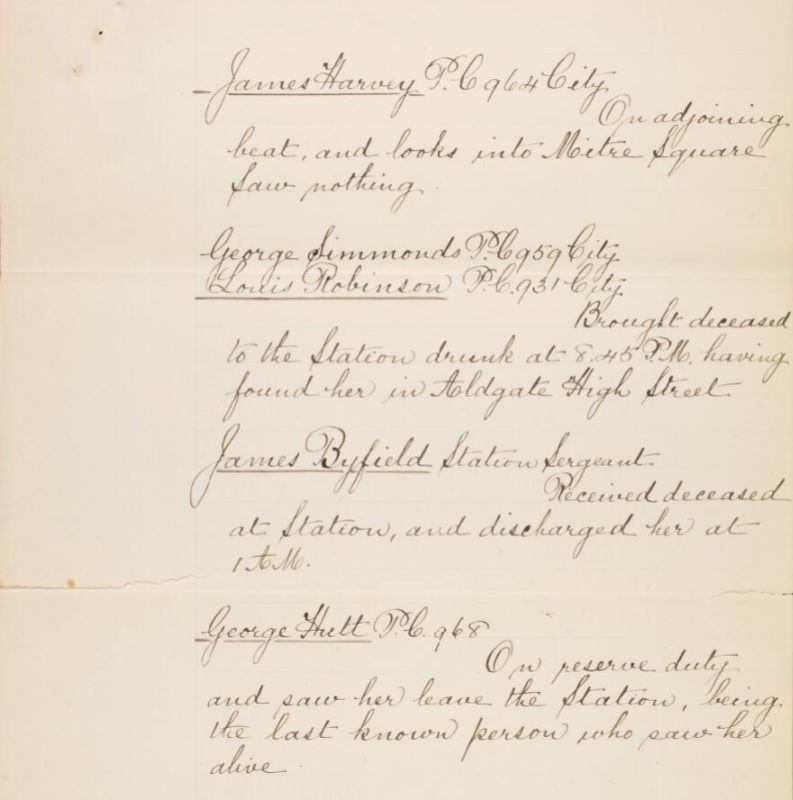 James Harvey P.C 964 City
On adjoining
beat, and looks into Mitre Square
Saw nothing.
George Simmonds P.C 959 City
Louis Robinson P.C. 931 City
Brought deceased
to the Station drunk at 8.45 P.M. having
found her in Aldgate High Street
James Byfield Station Sergeant
Received deceased
at Station, and discharged her at
1 AM.
George Hutt P.C. 968
On reserve duty
and saw her leave the Station, being
the last known person who saw her
alive.